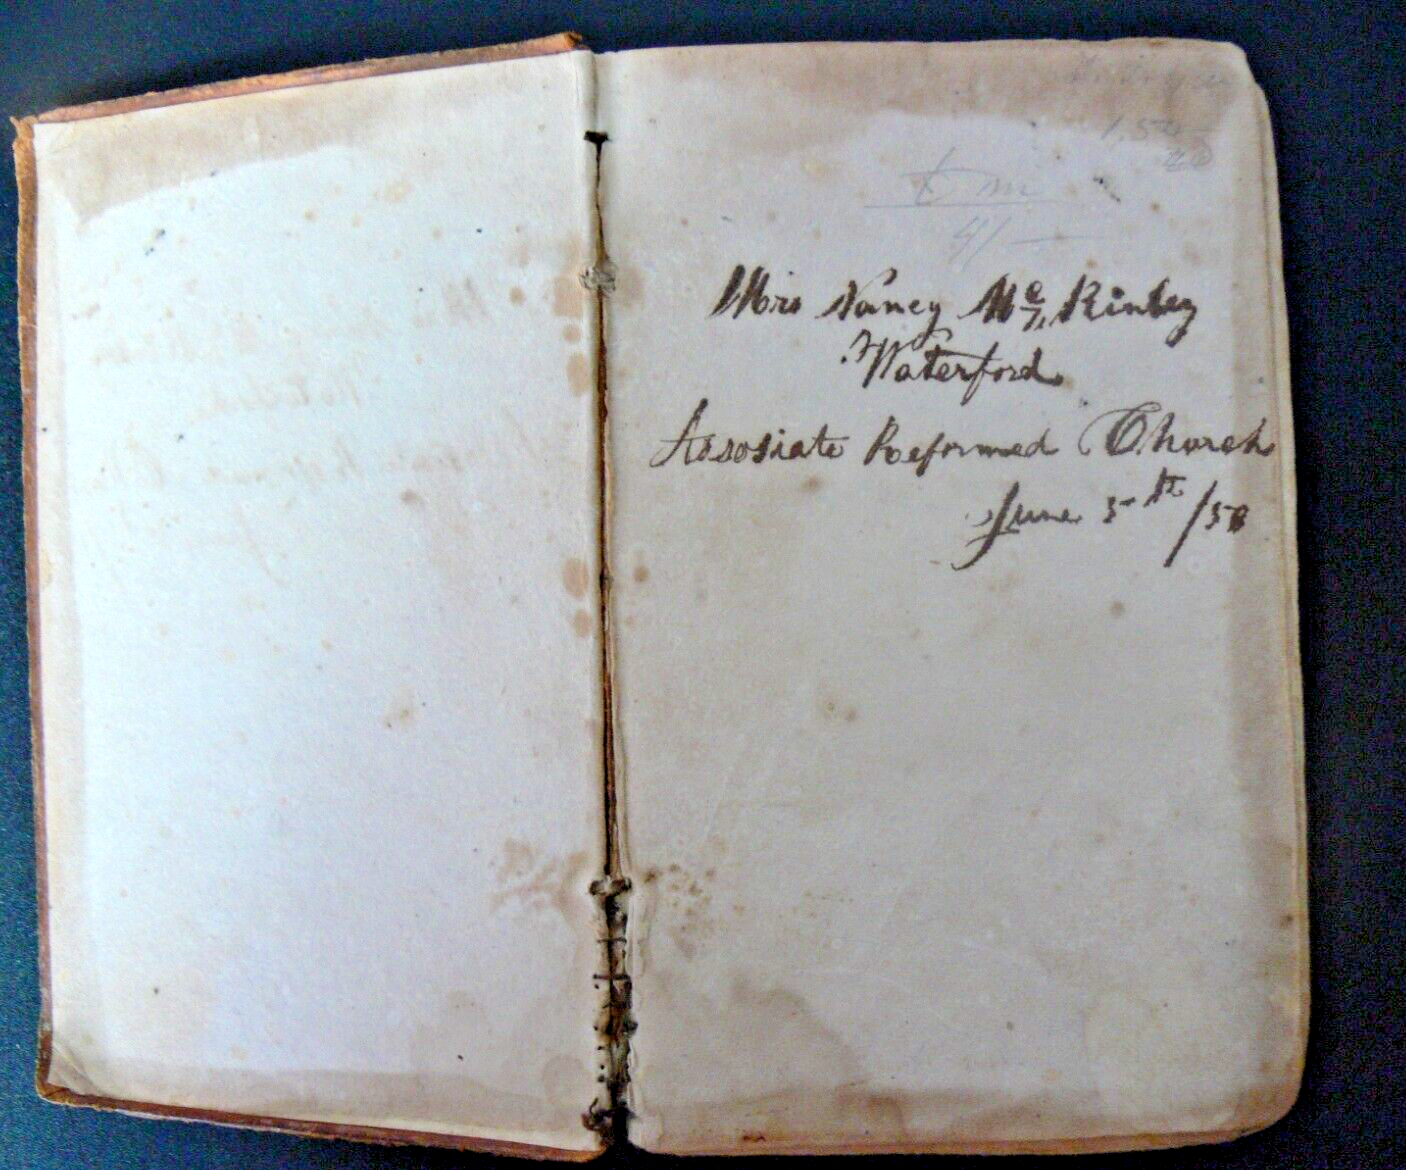 1.50
Mrs Nancy Mc,Kinley
Waterford
Assosiate Reformed Church
June 5th /58